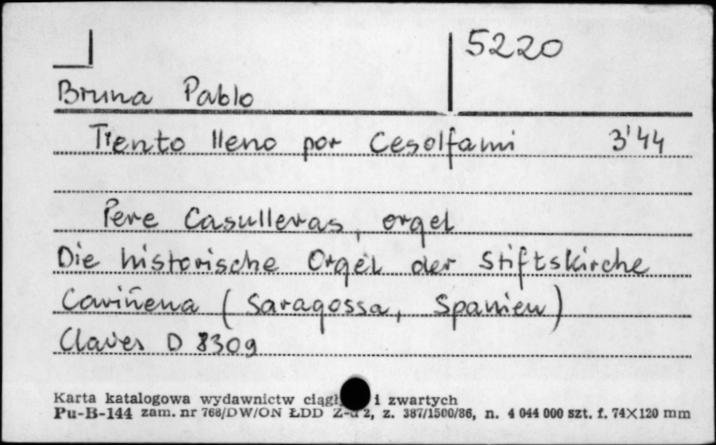 5220
Bruna Pablo
Tiento lleno por Cesolfami 3'44
Pere Casulleras, orgel
Die historische Orgel der Stiftskirche
Cariñena (Saragossa, Spanien)
Claves D 8309
Karta katalogowa wydawnictw i zwartych
Pu-B-144 zam. nr 768/DW/ON ŁDD z. 387/1500/86, n. 4 044 000 szt. f. 74×120 mm